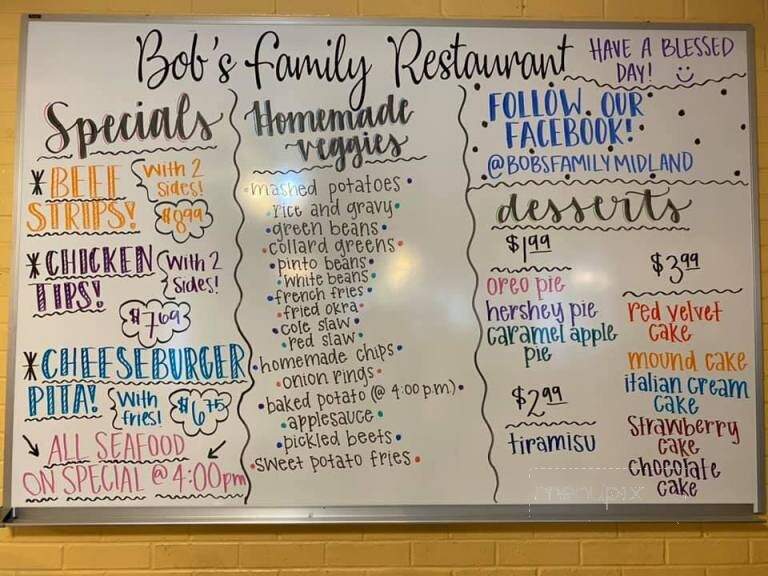 Bob's Family Restaurant
HAVE A BLESSED
DAY!
Specials
*BEEF
STRIPS!
With 2
sides!
$8.99
*CHICKEN
TIPS!
With 2
Sides!
$7.69
*CHEESEBURGER
PITA!
With
fries!
$6.75
ALL SEAFOOD
ON SPECIAL @ 4:00pm
Homemade
veggies
•mashed potatoes•
•rice and gravy•
•green beans•
•collard greens•
•pinto beans•
•white beans•
•french fries•
•fried okra•
•cole slaw•
•red slaw•
•homemade chips•
•onion rings•
•baked potato (@ 4:00 p.m.)•
•applesauce•
•pickled beets•
•sweet potato fries•
FOLLOW OUR
FACEBOOK!
@BOBSFAMILYMIDLAND
desserts
$1.99
oreo pie
hershey pie
caramel apple
pie
$2.99
tiramisu
$3.99
red velvet
cake
mound cake
italian cream
cake
Strawberry
cake
chocolate
cake
menupix